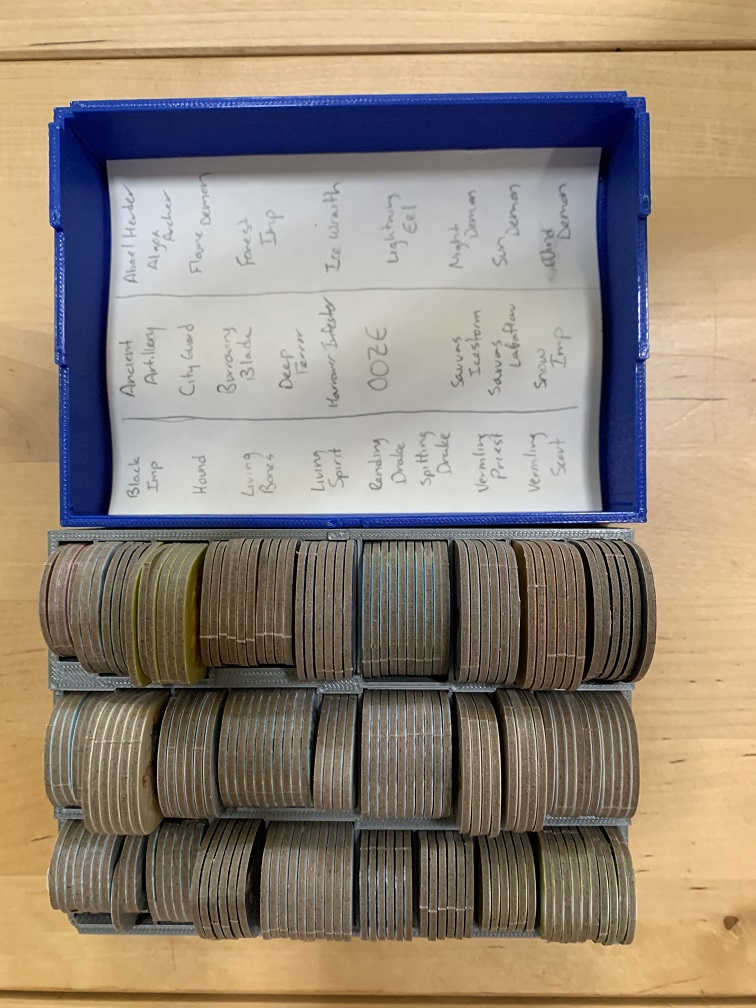 Black
Imp
Hound
Living
Bones
Living
Spirit
Rending
Drake
Spitting
Drake
Vermling
Priest
Vermling
Scout
Ancient
Artillery
City Guard
Burrowing
Blade
Deep
Terror
Harrower Infester
OOZE
Savvas
Icestorm
Savvas
Lavaflow
Snow
Imp
Abael Herder
Algox
Archer
Flame Demon
Forest
Imp
Ice Wraith
Lightning
Eel
Night
Demon
Sun
Demon
Wind
Demon